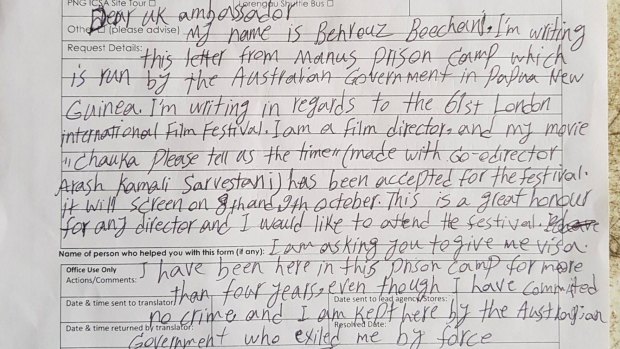 PNG ICSA Site Tour □ Lorengau Shuttle Bus □
Dear UK ambassador
Other □ (please advise) My name is Behrouz Boochani. I'm writing
Request Details: this letter from Manus prison camp which
is run by the Australian Government in Papua New
Guinea. I'm writing in regards to the 61st London
international Film Festival. I am a film director, and my movie
"Chauka Please tell us the time" (made with Co-director
Arash Kamali Sarvestani) has been accepted for the festival.
it will screen on 8th and 9th october. This is a great honour
for any director and I would like to attend the festival.
Name of person who helped you with this form (if any): I am asking you to give me visa.
Office Use Only
Actions/Comments: I have been here in this prison camp for more
than four years, even though I have committed
Date & time sent to translator: Date sent to lead agency/stores:
no crime and I am kept here by the Australian
Date & time returned by translator: Resolved Date:
Government who exiled me by force